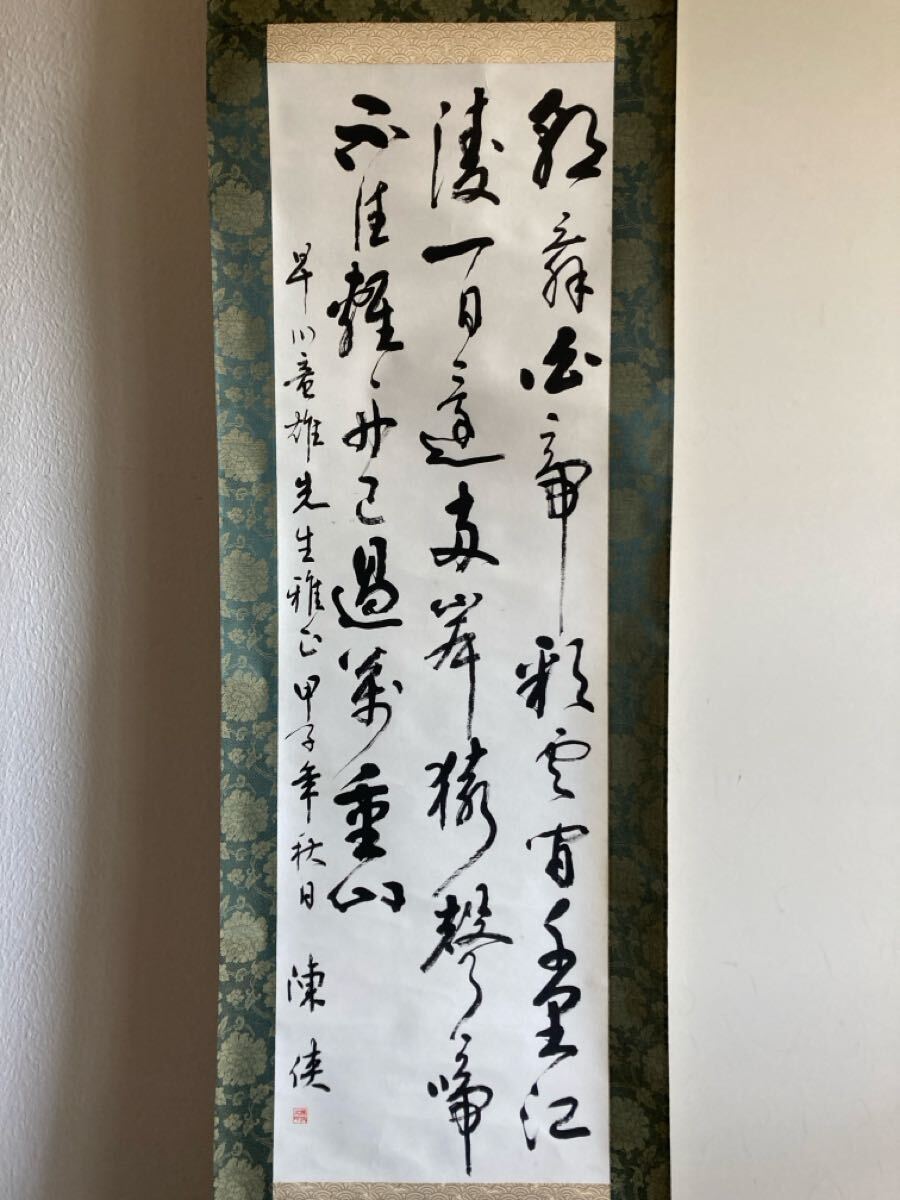 朝辞白帝彩雲間千里江
陵一日還両岸猿聲啼
不住軽舟已過萬重山
早川竜雄先生雅正甲子年秋日 陳侠